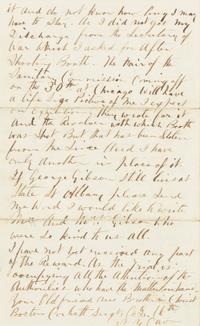 it and do not know how long I may
have to stay. As I did not get my
Discharge from the Secretary of
War which I asked for After
Shooting Booth. The Fair of the
Sanitary Commission Coming off
on the 30th at Chicago will have
a life Size Picture of Me I expect
they wrote for it
And the Revolver with which Booth
was Shot But that has been Stolen
from Me Since And I have
only Another in place of it
If George Gilson Still lives at
State St Albany please Send
Me word I would like to write
And Gilson who
were so kind to us all
I have not yet received any part
of the Reward. As the trial is
occupying All the Attention of the
Authorities who have the Matter in hand
Your Old friend and Brother in Christ
Boston Corbett Sergt Co L 16th
N.Y. Cav